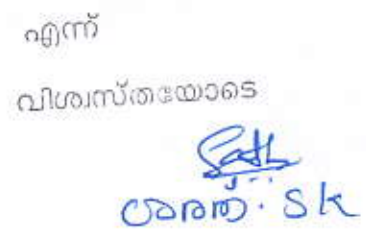 എന്ന്
വിശ്വസ്തയോടെ
ശരത്. SK